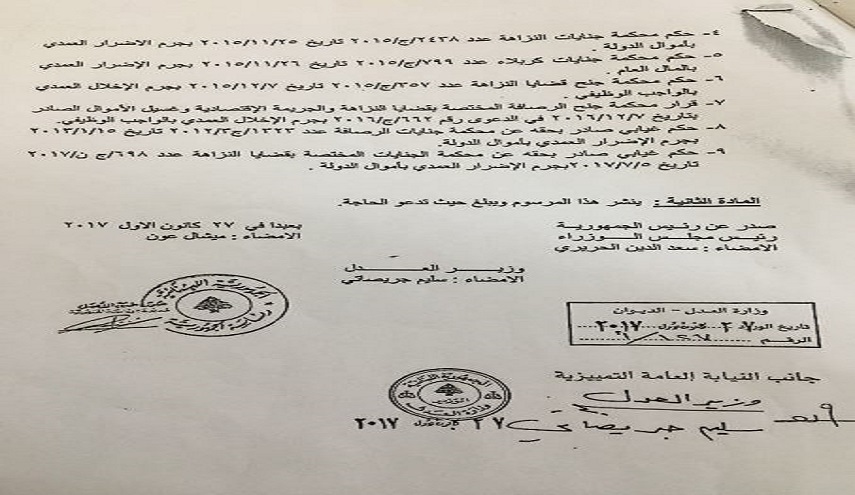 ٤- حكم محكمة جنايات النزاهة عدد ٢٤٣٨/ج/٢٠١٥ تاريخ ٢٠١٥/١١/٢٥ بجرم الإضرار العمدي
بأموال الدولة .
٥- حكم محكمة جنايات كربلاء عدد ٧٩٩/ج/٢٠١٥ تاريخ ٢٠١٥/١١/٢٦ بجرم الإضرار العمدي
بالمال العام .
٦- حكم محكمة جنح قضايا النزاهة عدد ٣٥٧/ج/٢٠١٥ تاريخ ٢٠١٥/١٢/٧ بجرم الإخلال العمدي
بالواجب الوظيفي .
٧- قرار محكمة جنح الرصافة المختصة بقضايا النزاهة والجريمة الإقتصادية وغسيل الأموال الصادر
بتاريخ ٢٠١٦/١٢/٧ في الدعوى رقم ٦٦٢/ج/٢٠١٦ بجرم الإخلال العمدي بالواجب الوظيفي.
٨- حكم غيابي صادر بحقه عن محكمة جنايات الرصافة عدد ١٣٢٣/ج٢٠١٢/٣ تاريخ ٢٠١٣/١/١٥
بجرم الإضرار العمدي بأموال الدولة.
٩- حكم غيابي صادر بحقه عن محكمة الجنايات المختصة بقضايا النزاهة عدد ٦٩٨/ج ن/٢٠١٧
تاريخ ٢٠١٧/٧/٥بجرم الإضرار العمدي بأموال الدولة .
المادة الثانية : ينشر هذا المرسوم ويبلغ حيث تدعو الحاجة.
صدر عن رئيس الجمهورية
رئيس مجلس الوزراء
الامضاء : سعد الدين الحريري
بعبدا في ٢٧ كانون الاول ٢٠١٧
الامضاء : ميشال عون
وزير العدل
الامضاء : سليم جريصاتي
الجمهورية اللبنانية
رئاسة الجمهورية
وزارة العدل - الديوان
تاريخ الورود ٢٧ كانون اول ٢٠١٧
الرقم
جانب النيابة العامة التمييزية
وزير العدل
سليم جريصاتي
الجمهورية اللبنانية
وزارة العدل
٢٧ كانون اول ٢٠١٧